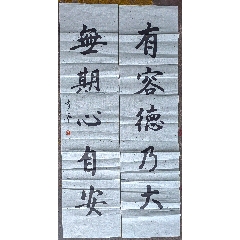 有容德乃大
無期心自安